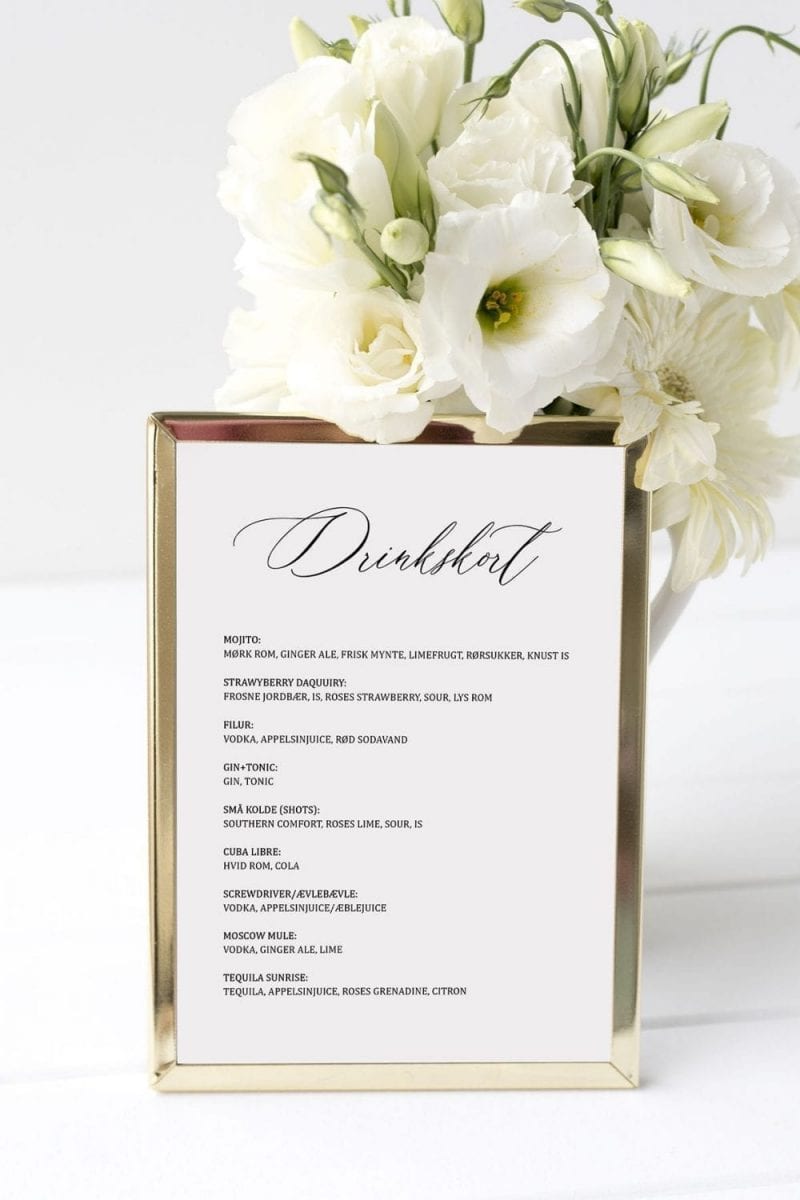 Drinkskort
MOJITO:
MØRK ROM, GINGER ALE, FRISK MYNTE, LIMEFRUGT, RØRSUKKER, KNUST IS
STRAWYBERRY DAQUUIRY:
FROSNE JORDBÆR, IS, ROSES STRAWBERRY, SOUR, LYS ROM
FILUR:
VODKA, APPELSINJUICE, RØD SODAVAND
GIN+TONIC:
GIN, TONIC
SMÅ KOLDE (SHOTS):
SOUTHERN COMFORT, ROSES LIME, SOUR, IS
CUBA LIBRE:
HVID ROM, COLA
SCREWDRIVER/ÆVLEBÆVLE:
VODKA, APPELSINJUICE/ÆBLEJUICE
MOSCOW MULE:
VODKA, GINGER ALE, LIME
TEQUILA SUNRISE:
TEQUILA, APPELSINJUICE, ROSES GRENADINE, CITRON